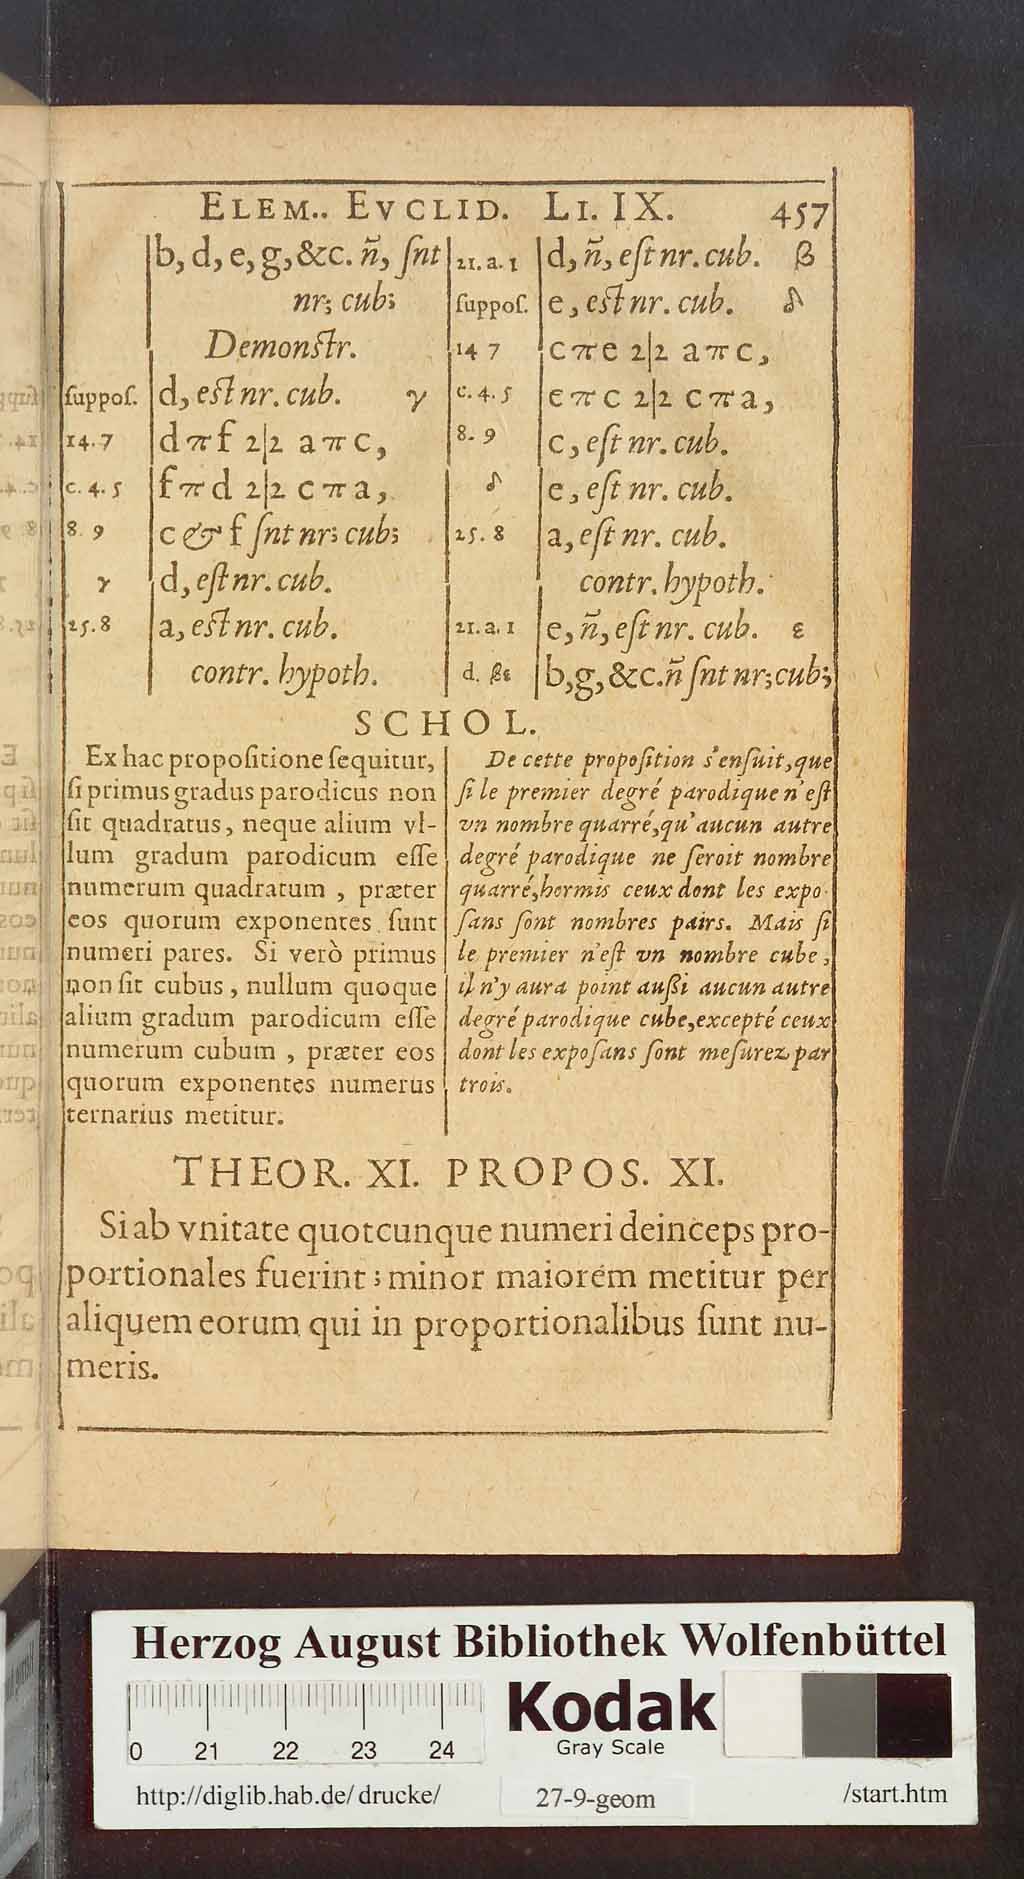 ELEM.. EVCLID. LI. IX. 457
b, d, e, g, &c. ñ, ſnt
nr; cub;
Demonſtr.
ſuppoſ. d, eſt nr. cub. γ
14. 7 dπf 2|2 aπc,
c. 4. 5 fπd 2|2 cπa,
8. 9 c & f ſnt nr; cub;
γ d, eſt nr. cub.
25. 8 a, eſt nr. cub.
contr. hypoth.
21. a. 1 d, ñ, eſt nr. cub. β
ſuppoſ. e, eſt nr. cub. δ
14 7 cπe 2|2 aπc,
c. 4. 5 eπc 2|2 cπa,
8. 9 c, eſt nr. cub.
δ e, eſt nr. cub.
25. 8 a, eſt nr. cub.
contr. hypoth.
21. a. 1 e, ñ, eſt nr. cub. ε
d. βε b, g, &c. ñ ſnt nr; cub;
SCHOL.
Ex hac propoſitione ſequitur,
ſi primus gradus parodicus non
ſit quadratus, neque alium vl-
lum gradum parodicum eſſe
numerum quadratum, præter
eos quorum exponentes ſunt
numeri pares. Si verò primus
non ſit cubus, nullum quoque
alium gradum parodicum eſſe
numerum cubum, præter eos
quorum exponentes numerus
ternarius metitur.
De cette propoſition s'enſuit, que
ſi le premier degré parodique n'eſt
vn nombre quarré, qu'aucun autre
degré parodique ne ſeroit nombre
quarré, hormis ceux dont les expo-
ſans ſont nombres pairs. Mais ſi
le premier n'eſt vn nombre cube,
il n'y aura point auſſi aucun autre
degré parodique cube, excepté ceux
dont les expoſans ſont meſurez par
trois.
THEOR. XI. PROPOS. XI.
Si ab vnitate quotcunque numeri deinceps pro-
portionales fuerint; minor maiorem metitur per
aliquem eorum qui in proportionalibus ſunt nu-
meris.
Herzog August Bibliothek Wolfenbüttel
0 21 22 23 24
Kodak
Gray Scale
http://diglib.hab.de/drucke/ 27-9-geom /start.htm